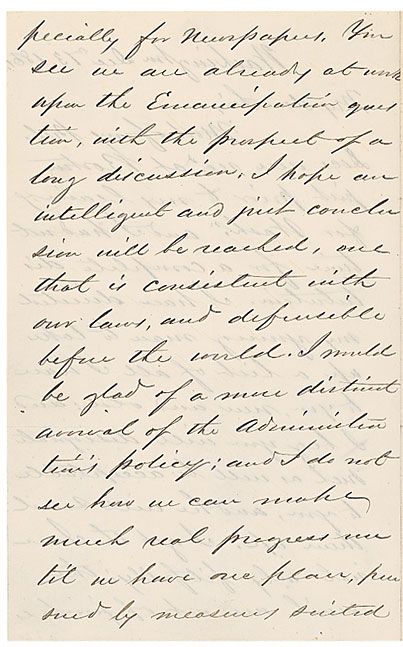 pecially for Newspapers. You
see we are already at work
upon the Emancipation ques
tion, with the prospect of a
long discussion. I hope an
intelligent and just conclu
sion will be reached, one
that is consistent with
our laws, and defensible
before the world. I would
be glad of a more distinct
avowal of the Administra
tion's policy; and I do not
see how we can make
much real progress un
til we have one plan, pur
sued by measures suited